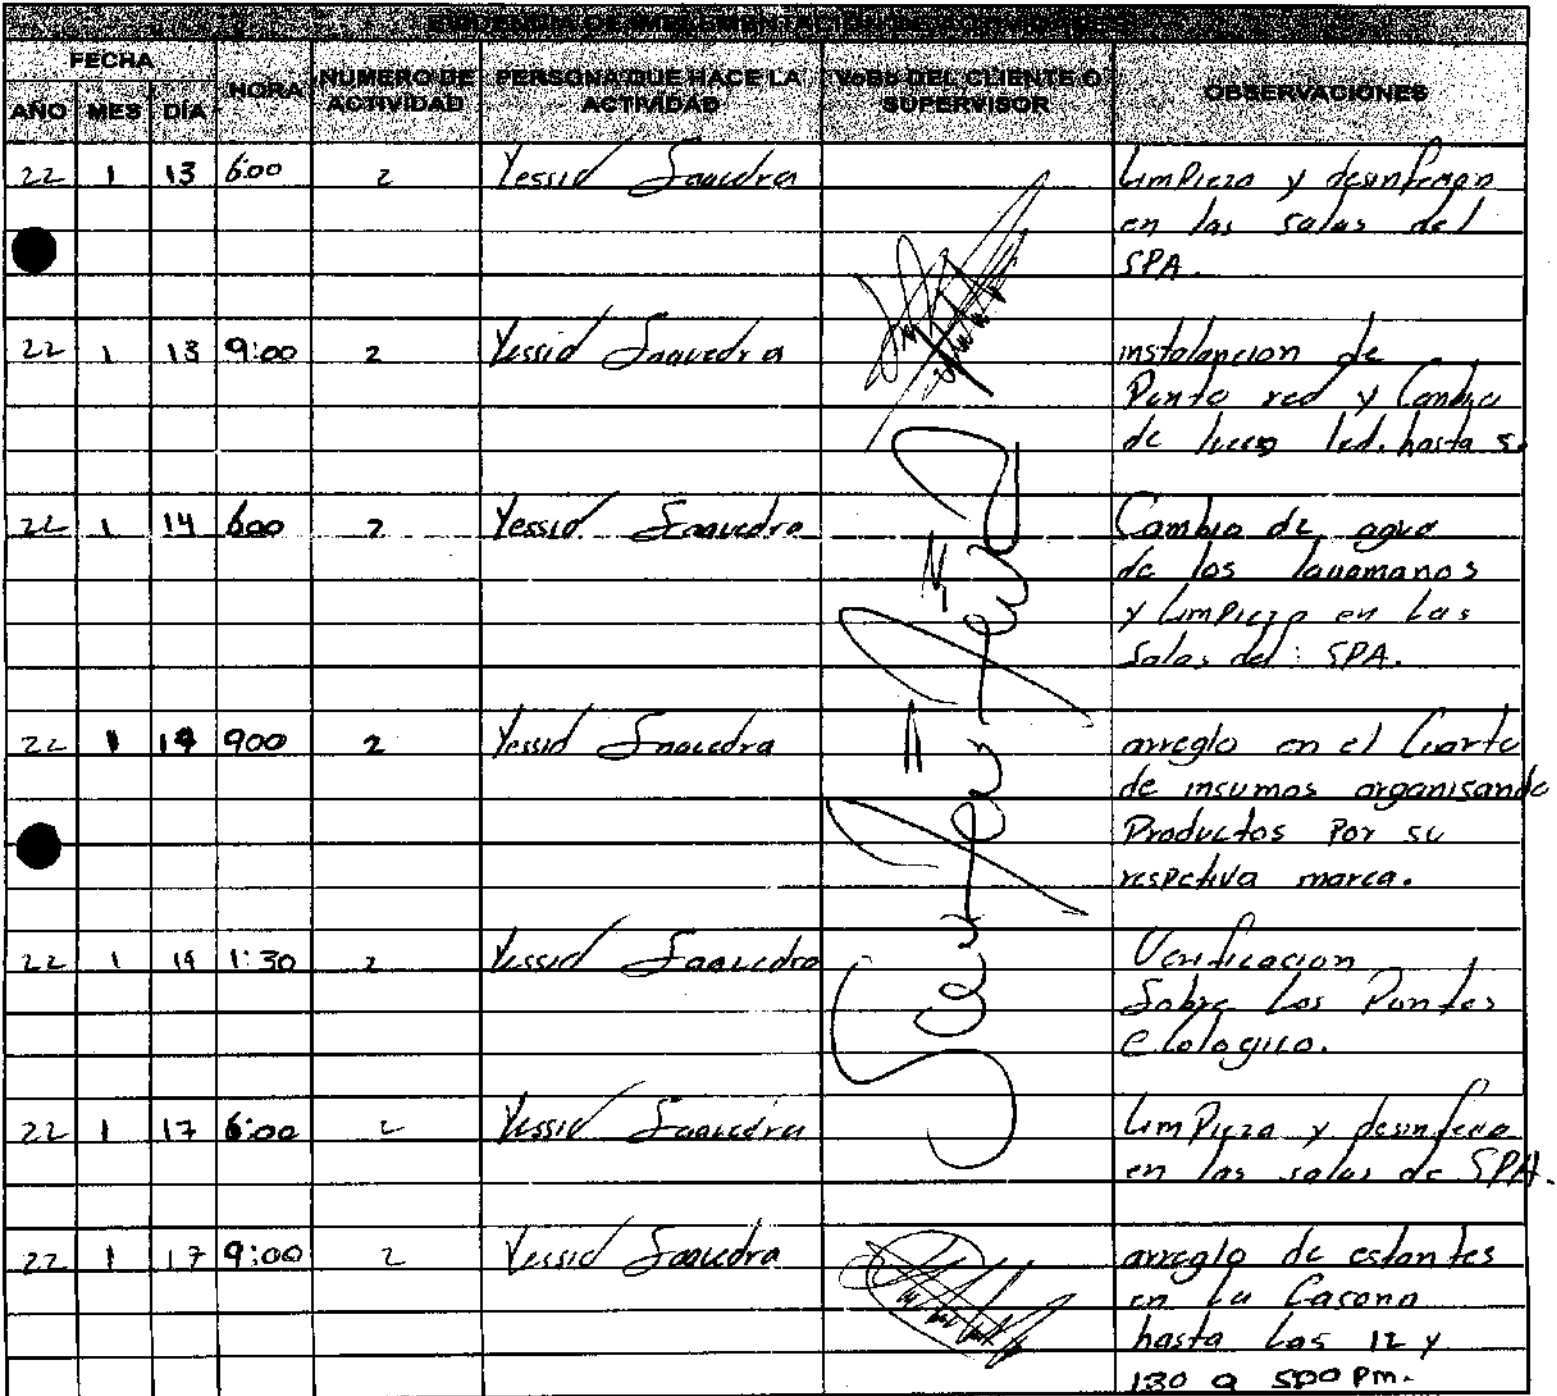 EVIDENCIA DE IMPLEMENTACIÓN DE ACTIVIDADES
FECHA
AÑO MES DÍA HORA NUMERO DE ACTIVIDAD PERSONA QUE HACE LA ACTIVIDAD VoBo DEL CLIENTE O SUPERVISOR OBSERVACIONES
22 1 13 6:00 2 Yessid Saavedra Limpieza y
en las salas del
SPA.
22 1 13 9:00 2 Yessid Saavedra
Punto red y Cambio
de luces led. hasta
22 1 14 600 2 Yessid Saavedra Cambio de agua
de los lavamanos
y Limpieza en Las
Salas del SPA.
22 1 14 900 2 Yessid Saavedra arreglo en el Cuarto
de insumos organisando
Productos Por su
respetiva marca.
22 1 14 1:30 2 Yessid Saavedra Verificacion
Sobre Los Puntos
22 1 17 6:00 2 Yessid Saavedra Limpieza y
en las salas de SPA.
22 1 17 9:00 2 Yessid Saavedra arreglo de estantes
en La Casona
hasta Las 12 y
130 a 500 Pm.